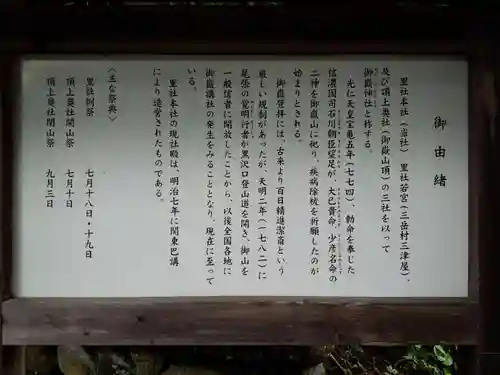 御由緒
里社本社（当社）、里社若宮（三岳村三津屋）、
及び頂上奥社（御嶽山頂）の三社を以って
御嶽神社と称する。
光仁天皇宝亀五年（七七四）、勅命を奉じた
信濃国司石川朝臣望足が、大己貴命、少彦名命の
二神を御嶽山に祀り、疾病除祓を祈願したのが
始まりとされる。
御嶽登拝には、古来より百日精進潔斎という
厳しい規制があったが、天明二年（一七八二）に
尾張の覚明行者が黒沢口登山道を開き、御山を
一般信者に開放したことから、以後全国各地に
御嶽講社の発生をみることとなり、現在に至って
いる。
里社本社の現社殿は、明治七年に関東巴講
により造営されたものである。
〈主な祭典〉
里社例祭 七月十八日・十九日
頂上奥社開山祭 七月十日
頂上奥社閉山祭 九月三日